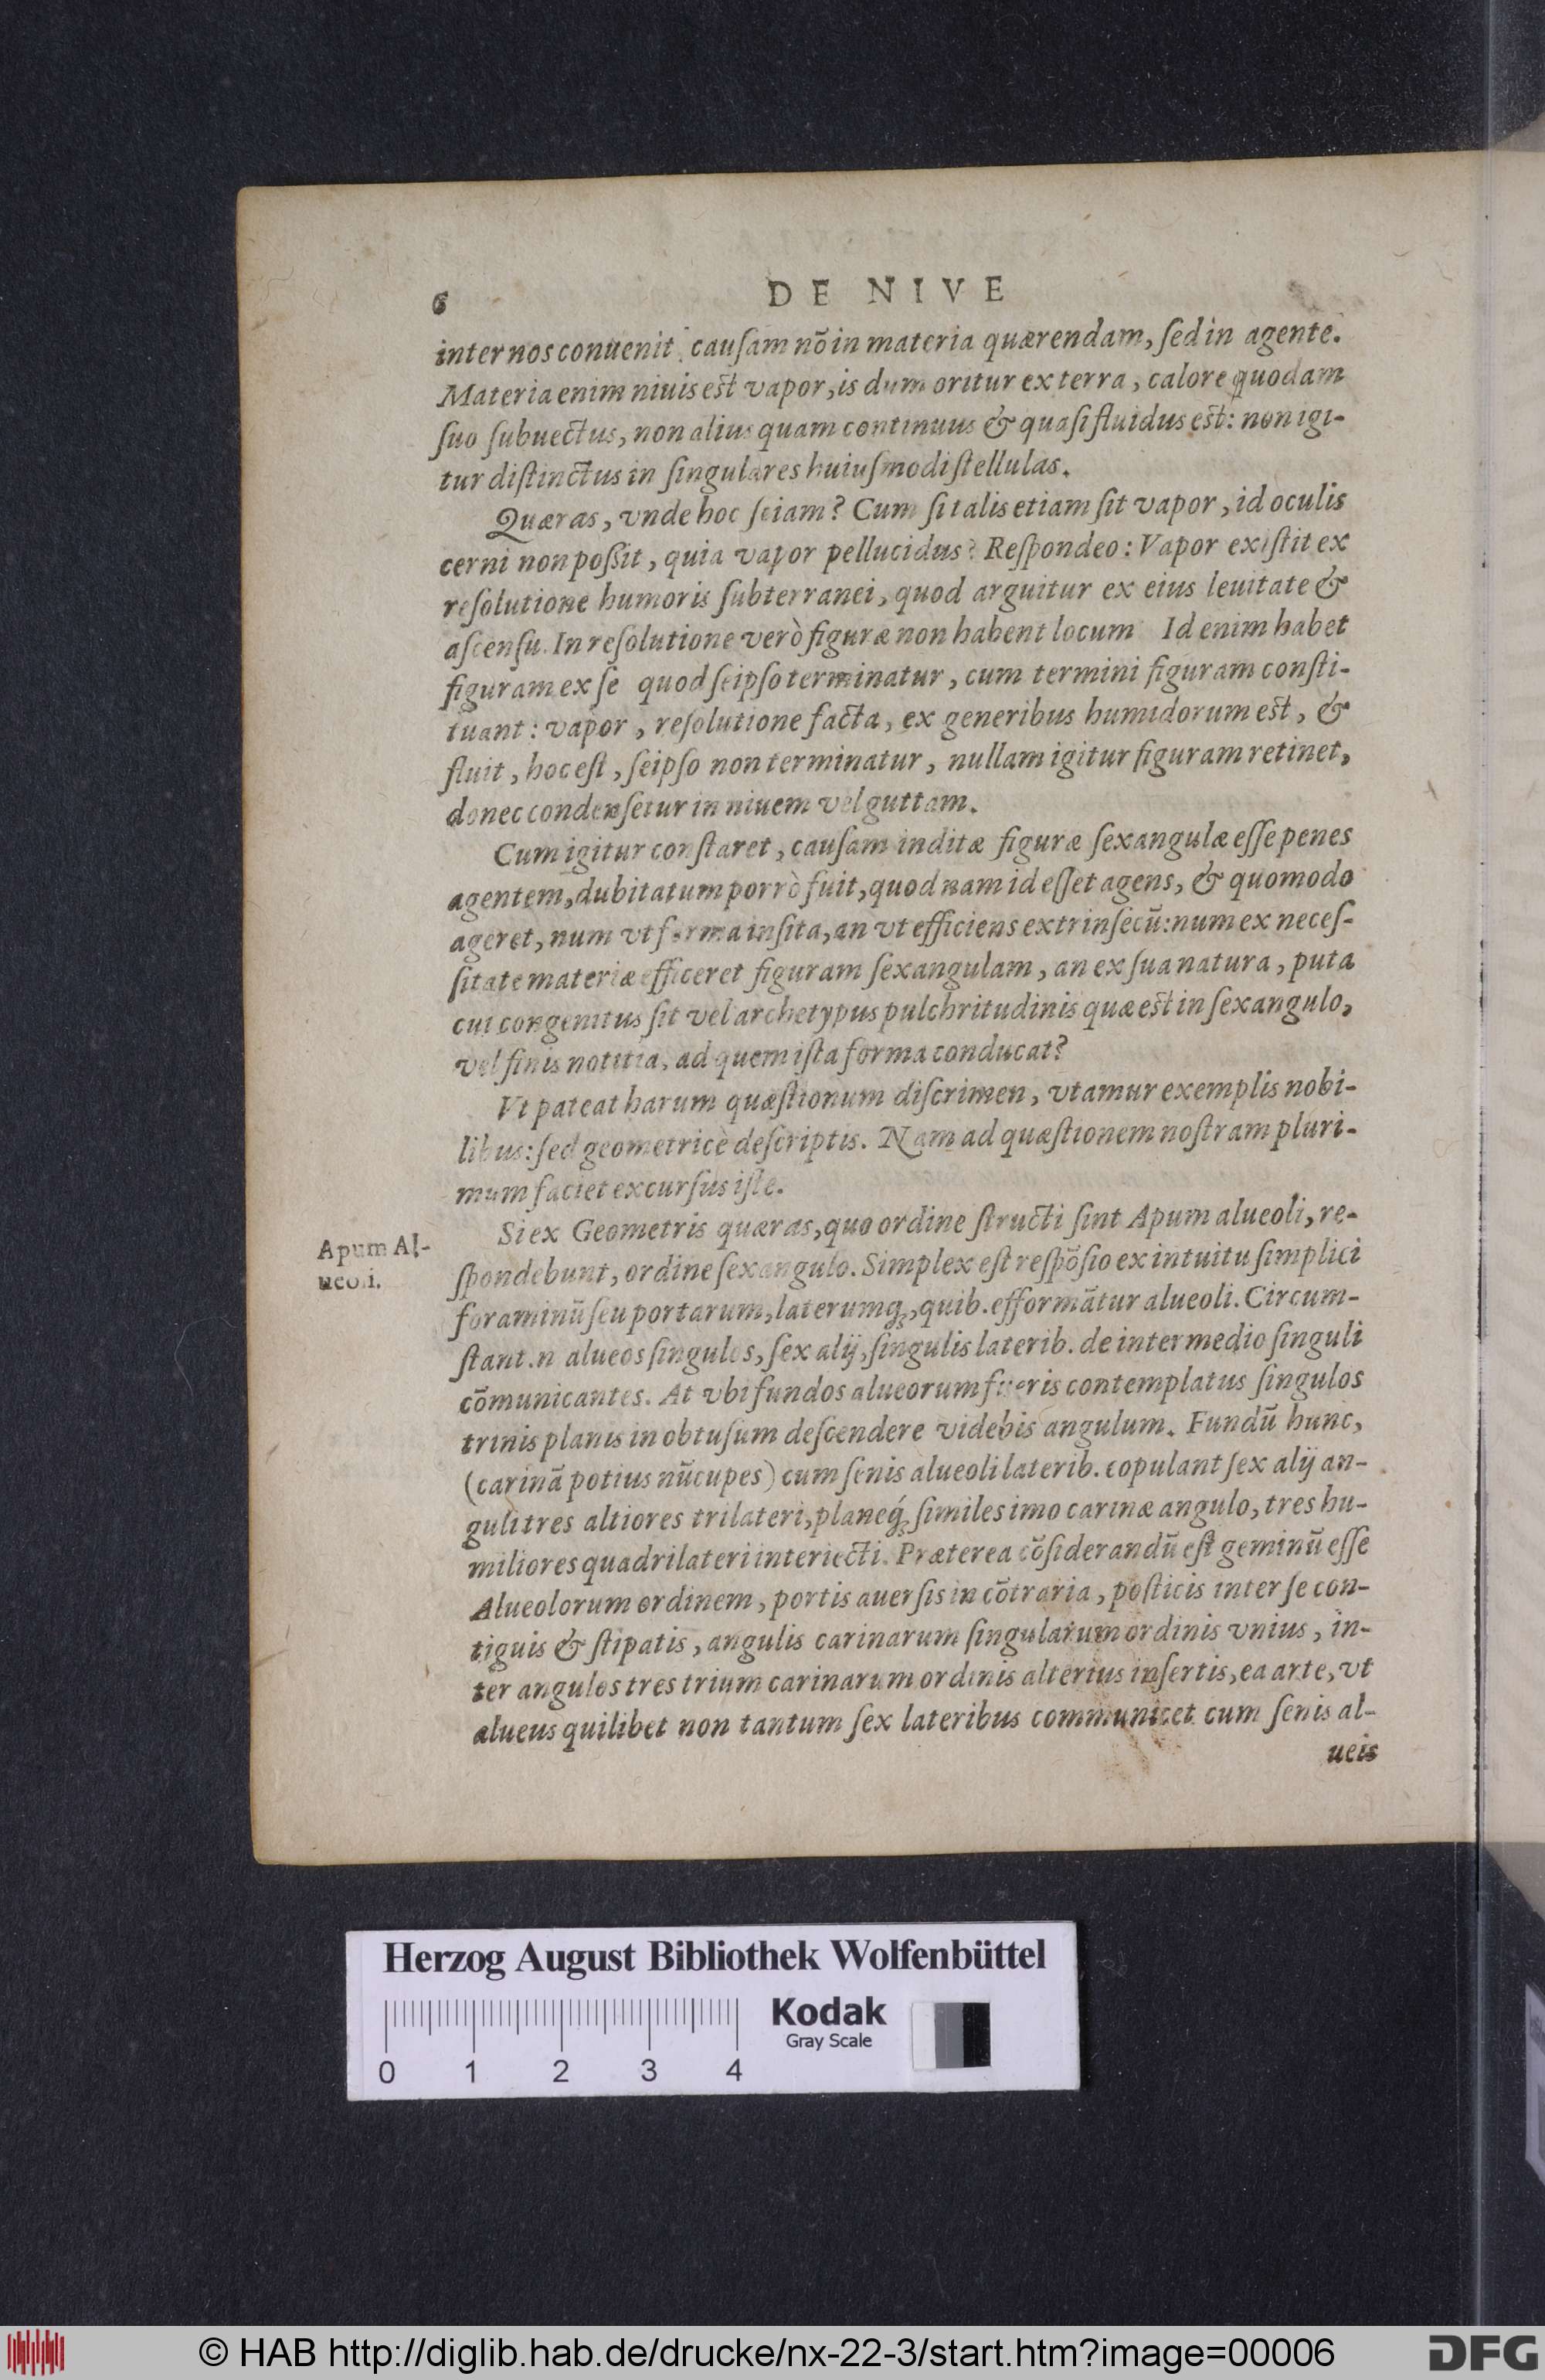 6 DE NIVE
inter nos conuenit, cauſam nõ in materia quærendam, ſed in agente.
Materia enim niuis est vapor, is dum oritur ex terra, calore quodam
ſuo ſubuectus, non alius quam continuus & quaſi fluidus est: non igi-
tur diſtinctus in ſingulares huiuſmodi ſtellulas.
Quæras, vnde hoc ſciam? Cum ſi talis etiam ſit vapor, id oculis
cerni non poſſit, quia vapor pellucidus? Reſpondeo: Vapor exiſtit ex
reſolutione humoris ſubterranei, quod arguitur ex eius leuitate &
aſcenſu. In reſolutione verò figuræ non habent locum Id enim habet
figuram ex ſe quod ſeipſo terminatur, cum termini figuram conſti-
tuant: vapor, reſolutione facta, ex generibus humidorum est, &
fluit, hoc eſt, ſeipſo non terminatur, nullam igitur figuram retinet,
donec condenſetur in niuem vel guttam.
Cum igitur conſtaret, cauſam inditæ figuræ ſexangulæ eſſe penes
agentem, dubitatum porrò fuit, quodnam id eſſet agens, & quomodo
ageret, num vt forma inſita, an vt efficiens extrinſecũ: num ex neceſ-
ſitate materiæ efficeret figuram ſexangulam, an ex ſua natura, puta
cui congenitus ſit vel archetypus pulchritudinis quæ est in ſexangulo,
vel finis notitia, ad quem iſta forma conducat?
Vt pateat harum quæſtionum diſcrimen, vtamur exemplis nobi-
libus: ſed geometricè deſcriptis. Nam ad quæſtionem noſtram pluri-
mum faciet excurſus iſte.
Si ex Geometris quæras, quo ordine ſtructi ſint Apum alueoli, re-
Apum Al-
ueoli.
ſpondebunt, ordine ſexangulo. Simplex eſt reſpõſio ex intuitu ſimplici
foraminũ ſeu portarum, laterumq́;, quib. efformãtur alueoli. Circum-
ſtant .n alueos ſingulos, ſex alij, ſingulis laterib. de intermedio ſinguli
cõmunicantes. At vbi fundos alueorum fueris contemplatus ſingulos
trinis planis in obtuſum deſcendere videbis angulum. Fundũ hunc,
(carinã potius nũcupes) cum ſenis alueoli laterib. copulant ſex alij an-
guli tres altiores trilateri, planeq́; ſimiles imo carinæ angulo, tres hu-
miliores quadrilateri interiecti. Præterea cõſiderandũ eſt geminũ eſſe
Alueolorum ordinem, portis auerſis in cõtraria, poſticis inter ſe con-
tiguis & ſtipatis, angulis carinarum ſingularum ordinis vnius, in-
ter angulos tres trium carinarum ordinis alterius inſertis, ea arte, vt
alueus quilibet non tantum ſex lateribus communicet cum ſenis al-
ueis
Herzog August Bibliothek Wolfenbüttel
Kodak
Gray Scale
0 1 2 3 4
© HAB http://diglib.hab.de/drucke/nx-22-3/start.htm?image=00006
DFG